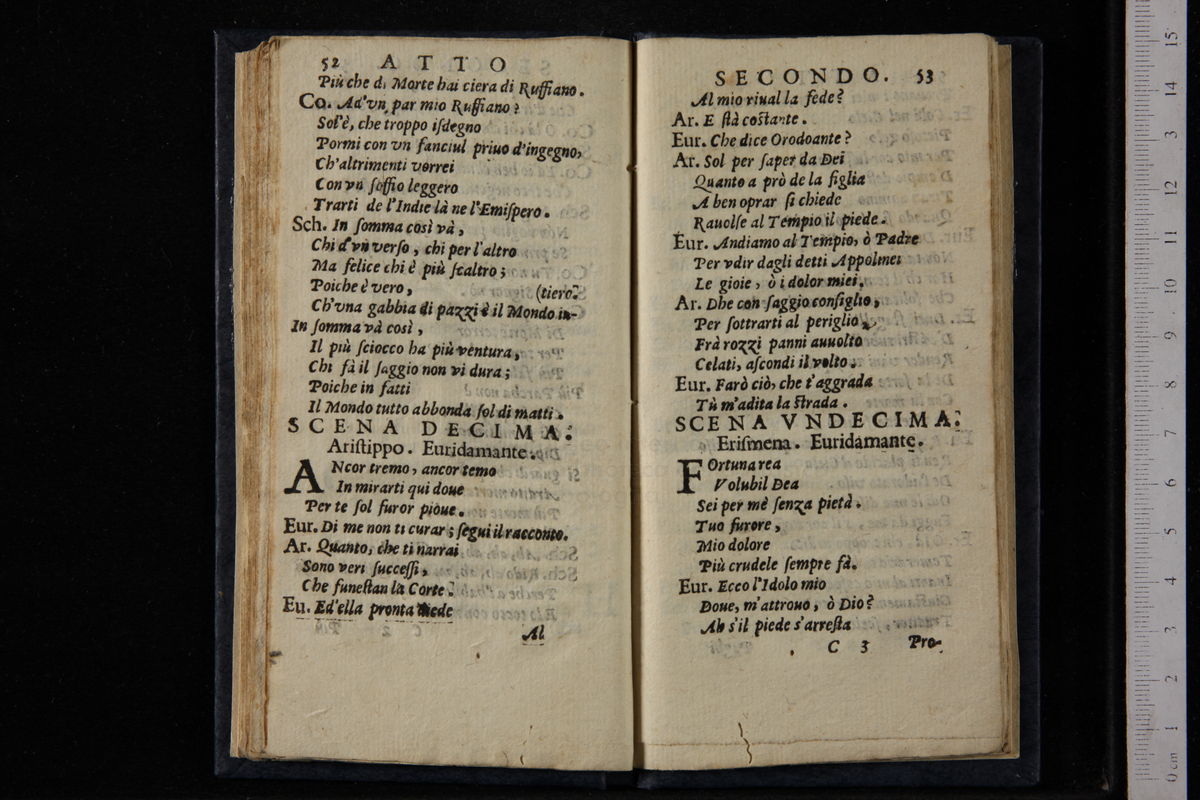 52 ATTO
Più che di Morte hai ciera di Ruffiano.
Co. Ad'vn par mio Ruffiano?
Sol'è, che troppo iſdegno
Pormi con vn fanciul priuo d'ingegno,
Ch'altrimenti vorrei
Con vn ſoffio leggero
Trarti de l'Indie là ne l'Emiſpero.
Sch. In ſomma così và,
Chi d'vn verſo, chi per l'altro
Ma felice chi è più ſcaltro;
Poiche è vero, (tiero.
Ch'vna gabbia di pazzi è il Mondo in-
In ſomma và così,
Il più ſciocco ha più ventura,
Chi fà il ſaggio non vi dura;
Poiche in fatti
Il Mondo tutto abbonda ſol di matti.
SCENA DECIMA.
Ariſtippo. Euridamante.
ANcor tremo, ancor temo
In mirarti qui doue
Per te ſol furor pioue.
Eur. Di me non ti curar; ſegui il racconto.
Ar. Quanto, che ti narrai
Sono veri ſucceſſi,
Che funeſtan la Corte.
Eu. Ed'ella pronta diede
Al
SECONDO. 53
Al mio riual la fede?
Ar. E ſtà coſtante.
Eur. Che dice Orodoante?
Ar. Sol per ſaper da Dei
Quanto a prò de la figlia
A ben oprar ſi chiede
Rauolſe al Tempio il piede.
Eur. Andiamo al Tempio, ò Padre
Per vdir dagli detti Appolinei
Le gioie, ò i dolor miei.
Ar. Dhe con ſaggio conſiglio,
Per ſottrarti al periglio
Frà rozzi panni auuolto
Celati, aſcondi il volto.
Eur. Farò ciò, che t'aggrada
Tù m'adita la ſtrada.
SCENA VNDECIMA.
Eriſmena. Euridamante.
FOrtuna rea
Volubil Dea
Sei per mè ſenza pietà.
Tuo furore,
Mio dolore
Più crudele ſempre fà.
Eur. Ecco l'Idolo mio
Doue, m'attrouo, ò Dio?
Ah s'il piede s'arreſta
C 3 Pro-